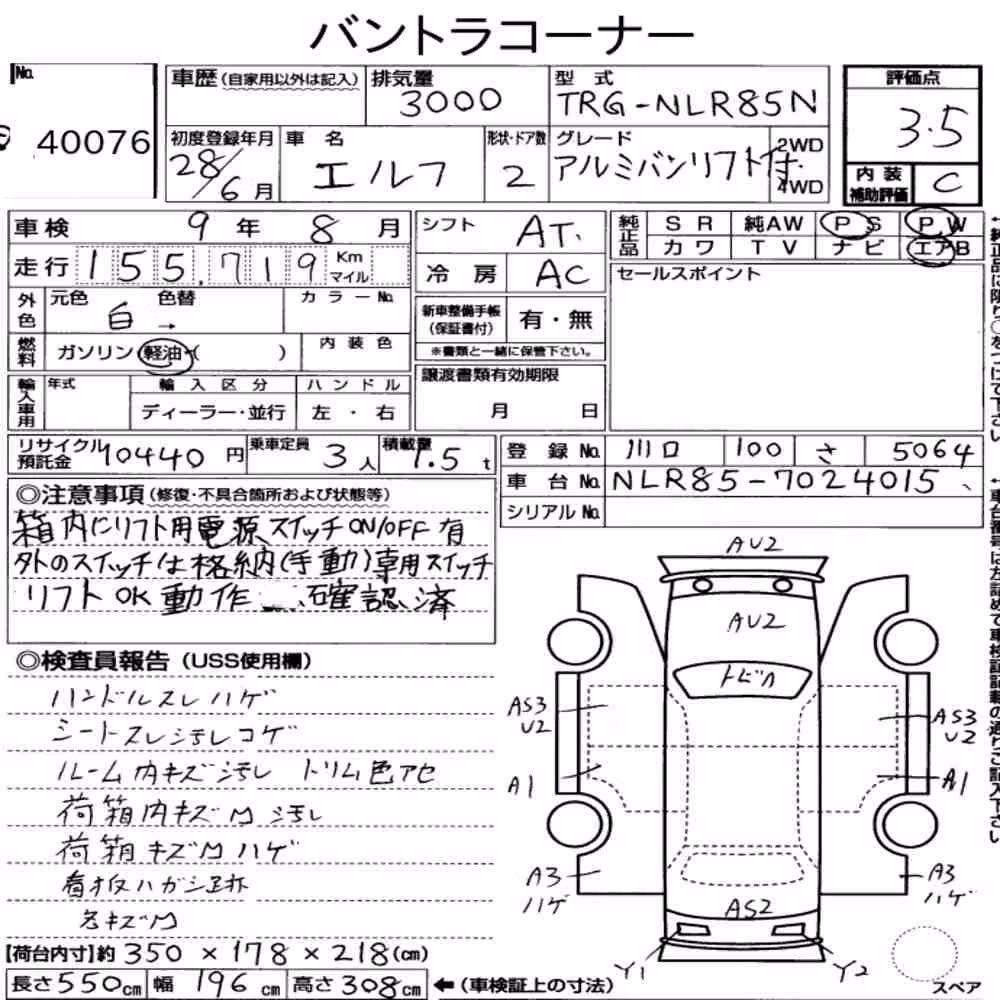 バントラコーナー
No.
40076
車歴（自家用以外は記入）
排気量
3000
型 式
TRG-NLR85N
評価点
3.5
初度登録年月
28/6月
車 名
エルフ
形状・ドア数
2
グレード
アルミバンリフト付.
2WD
4WD
内装
補助評価
C
車検 9年 8月
シフト
AT.
純正品
SR 純AW PS PW
カワ TV ナビ エアB
走行 155,719 Km
マイル
冷房
AC
セールスポイント
外色
元色 色替
白 →
カラーNo.
新車整備手帳
（保証書付）
有・無
※書類と一緒に保管下さい。
燃料
ガソリン・軽油・（ ）
内装色
輸入車用
年式
輸入区分
ディーラー・並行
ハンドル
左・右
譲渡書類有効期限
月 日
リサイクル
預託金
10440円
乗車定員
3人
積載量
1.5t
登録No. 川口 100 さ 5064
車台No. NLR85-7024015
シリアルNo.
◎注意事項（修復・不具合箇所および状態等）
箱内にリフト用電源スイッチON/OFF有
外のスイッチは格納(手動)専用スイッチ
リフトOK動作 確認済
◎検査員報告（USS使用欄）
ハンドルスレハゲ
シートスレ汚レコゲ
ルーム内キズ汚レ トリム色アセ
荷箱内キズM汚レ
荷箱キズMハゲ
看板ハガシ跡
各キズM
AU2
AU2
トビハ
AS3
U2
AS3
U2
A1
A1
A3
ハゲ
A3
ハゲ
AS2
Y1
Y2
スペア
【荷台内寸】約 350×178×218(cm)
長さ550cm 幅196cm 高さ308cm
←（車検証上の寸法）
←純正品に限り○をつけて下さい
←車台番号は左詰めで車検証記載の通りご記入下さい